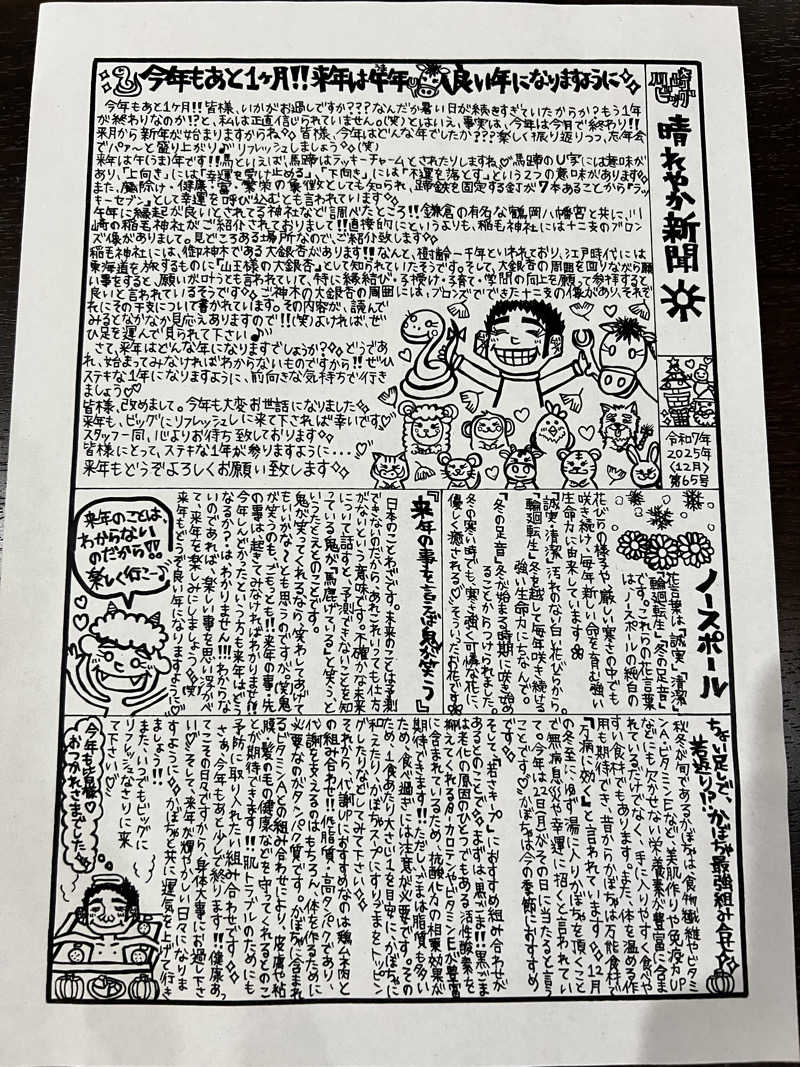 今年もあと1ヶ月!!来年は午年 良い年になりますように
川崎ビッグ
晴れやか新聞
令和7年
2025年
〈12月〉
第65号
今年もあと1ヶ月!!皆様、いかがお過しですか???なんだか暑い日が続きすぎていたからか?もう1年
が終わりなのか!?と、私は正直信じられていません。(笑)とはいえ、事実は、今年は今月で終わり!!
来月から新年が始まりますからね。皆様、今年はどんな年でしたか???楽しく振り返りつつ、忘年会
でパァ〜と盛り上がり♪リフレッシュしましょう。(笑)
来年は午(うま)年です!!馬といえば、馬蹄はラッキーチャームとされたりしますね♡馬蹄のU字には意味が
あり、「上向き」には「幸運を受け止める」、「下向き」には「不運を落とす」という2つの意味があります。
また、魔除け・健康・富・繁栄の象徴としても知られ、蹄鉄を固定する釘が7本あることから「ラッ
キーセブン」として幸運を呼び込むとも言われています。
午年に縁起が良いとされてる神社など調べたところ!!鎌倉の有名な鶴岡八幡宮と共に、川
崎の稲毛神社がご紹介されておりまして!!直接的にというよりも、稲毛神社には十二支のブロン
ズ像がありまして。見どころある場所なので、ご紹介致します
稲毛神社には、御神木である大銀杏があります!!なんと、樹齢一千年といわれており、江戸時代には
東海道を旅するものに「山王様の大銀杏」として知られていたそうです。そして、大銀杏の周囲を回りながら願
い事をすると、願いが叶うとも言われていて、特に縁結び・子授け・子育て・学問の向上を願って参拝すると
良いと言われているそうです。ご神木の大銀杏の周囲には、ブロンズでできた十二支の像があり、それぞ
れにその干支について書かれています。その内容が、読んで
みるとなかなか見応えありますので!!(笑)よければ、ぜ
ひ足を運んで見られて下さい♪
さて、来年はどんな年になりますでしょうか?。どうであ
れ、始まってみなければわからないものですから!!ぜひ
ステキな1年になりますように、前向きな気持ちで行き
ましょう♡
皆様、改めまして。今年も大変お世話になりました
来年も、ビッグにリフレッシュしに来て下されば幸いです♡
スタッフ一同、心よりお待ち致しております
皆様にとって、ステキな1年が参りますように・・・♡
来年もどうぞよろしくお願い致します
ノースポール
花言葉は「誠実」「清潔」
「輪廻転生」「冬の足音」
です。これらの花言葉
は、ノースポールの純白の
花びらの様子や、厳しい寒さの中でも
咲き続け、毎年新しい命を育む強い
生命力に由来しています
「誠実・清潔」汚れのない白い花びらから。
「輪廻転生」冬を越して毎年咲き続ける
強い生命力にちなんで。
「冬の足音」冬が始まる時期に咲き始め
ることからつけられました。
冬の寒い時でも、寒さ強く可憐な花に、
優しく癒される♡そういったお花です
『来年の事を言えば鬼が笑う』
日本のことわざです。未来のことは予測
できないのだから、あれこれいっても仕方
がないという意味です。不確かな未来
について話すと、予測できないことを知
っている鬼が「馬鹿げている」と笑う、と
いうたとえとのことです。
鬼が笑ってくれるなら、笑わしてあげて
もいいかな〜とも思うのですが。(笑)鬼
が笑うのも、ごもっとも!!来年の事・先
の事は、起きてみなければわかりません!!
今年しんどかったという方も来年はどう
なるか?はわかりません!!!わからな
いのであれば、楽しい事を思い浮かべ
て、来年を楽しみにしましょう(笑)
来年もどうぞ良い年になりますよう♡
来年のことは、
わからない
のだから!!
楽しく行こ〜♪
ちょい足しで、
若返り!?かぼちゃ最強組み合せ
秋冬が旬であるかぼちゃは、食物繊維やビタミ
ンA・ビタミンEなど、美肌作りや免疫力UP
などにも欠かせない栄養素が豊富に含ま
れているだけでなく、手に入りやすく食べや
すい食材でもあります。また、体を温める作
用も期待でき、昔からかぼちゃは万能食材で
「万病に効く」と言われています。12月
の冬至にゆず湯に入りかぼちゃを頂くこと
で無病息災や幸運に招くと言われてい
て。今年は22日(月)がその日に当たると言う
ことです♡かぼちゃは今の季節におすすめ
です
そして、「若さキープ」におすすめ組み合わせが
あるとのことで。まずは、黒ごま!!黒ごま
は老化の原因のひとつでもある活性酸素を
抑えてくれるβ-カロテンやビタミンEが豊富
に含まれているため、抗酸化力の相乗効果が
期待できます!!ただし、ごまは脂質も多い
ため、食べ過ぎには注意が必要です。その
ため、1食あたり大さじ1を目安に、かぼちゃに
和えたり、かぼちゃスープにすりごまをトッピン
グしたりなどしてみて下さい
それから、代謝UPにおすすめなのは鶏ムネ肉と
の組み合わせ!!低脂質・高タンパクであり、
代謝を支えるのはもちろん、体を作るために
必要なのがタンパク質です。かぼちゃに含まれ
るビタミンAとの組み合わせにより、皮膚や粘
膜、髪の毛の健康などを守ってくれるとのこ
とが期待できます!!肌トラブルのためにも
予防に取り入れたい組み合わせです
さぁ、今年もあと少しで終ります!!健康あっ
てこその日々ですから、身体大事にお過し下さ
い♡そして、来年が輝やかしい日々になりま
すように♡かぼちゃと共に運気を上げて行き
ましょう!!
また、いつでもビッグに
リフレッシュなさりに来
て下さい♡
今年も皆様♡
おつかれさまでした